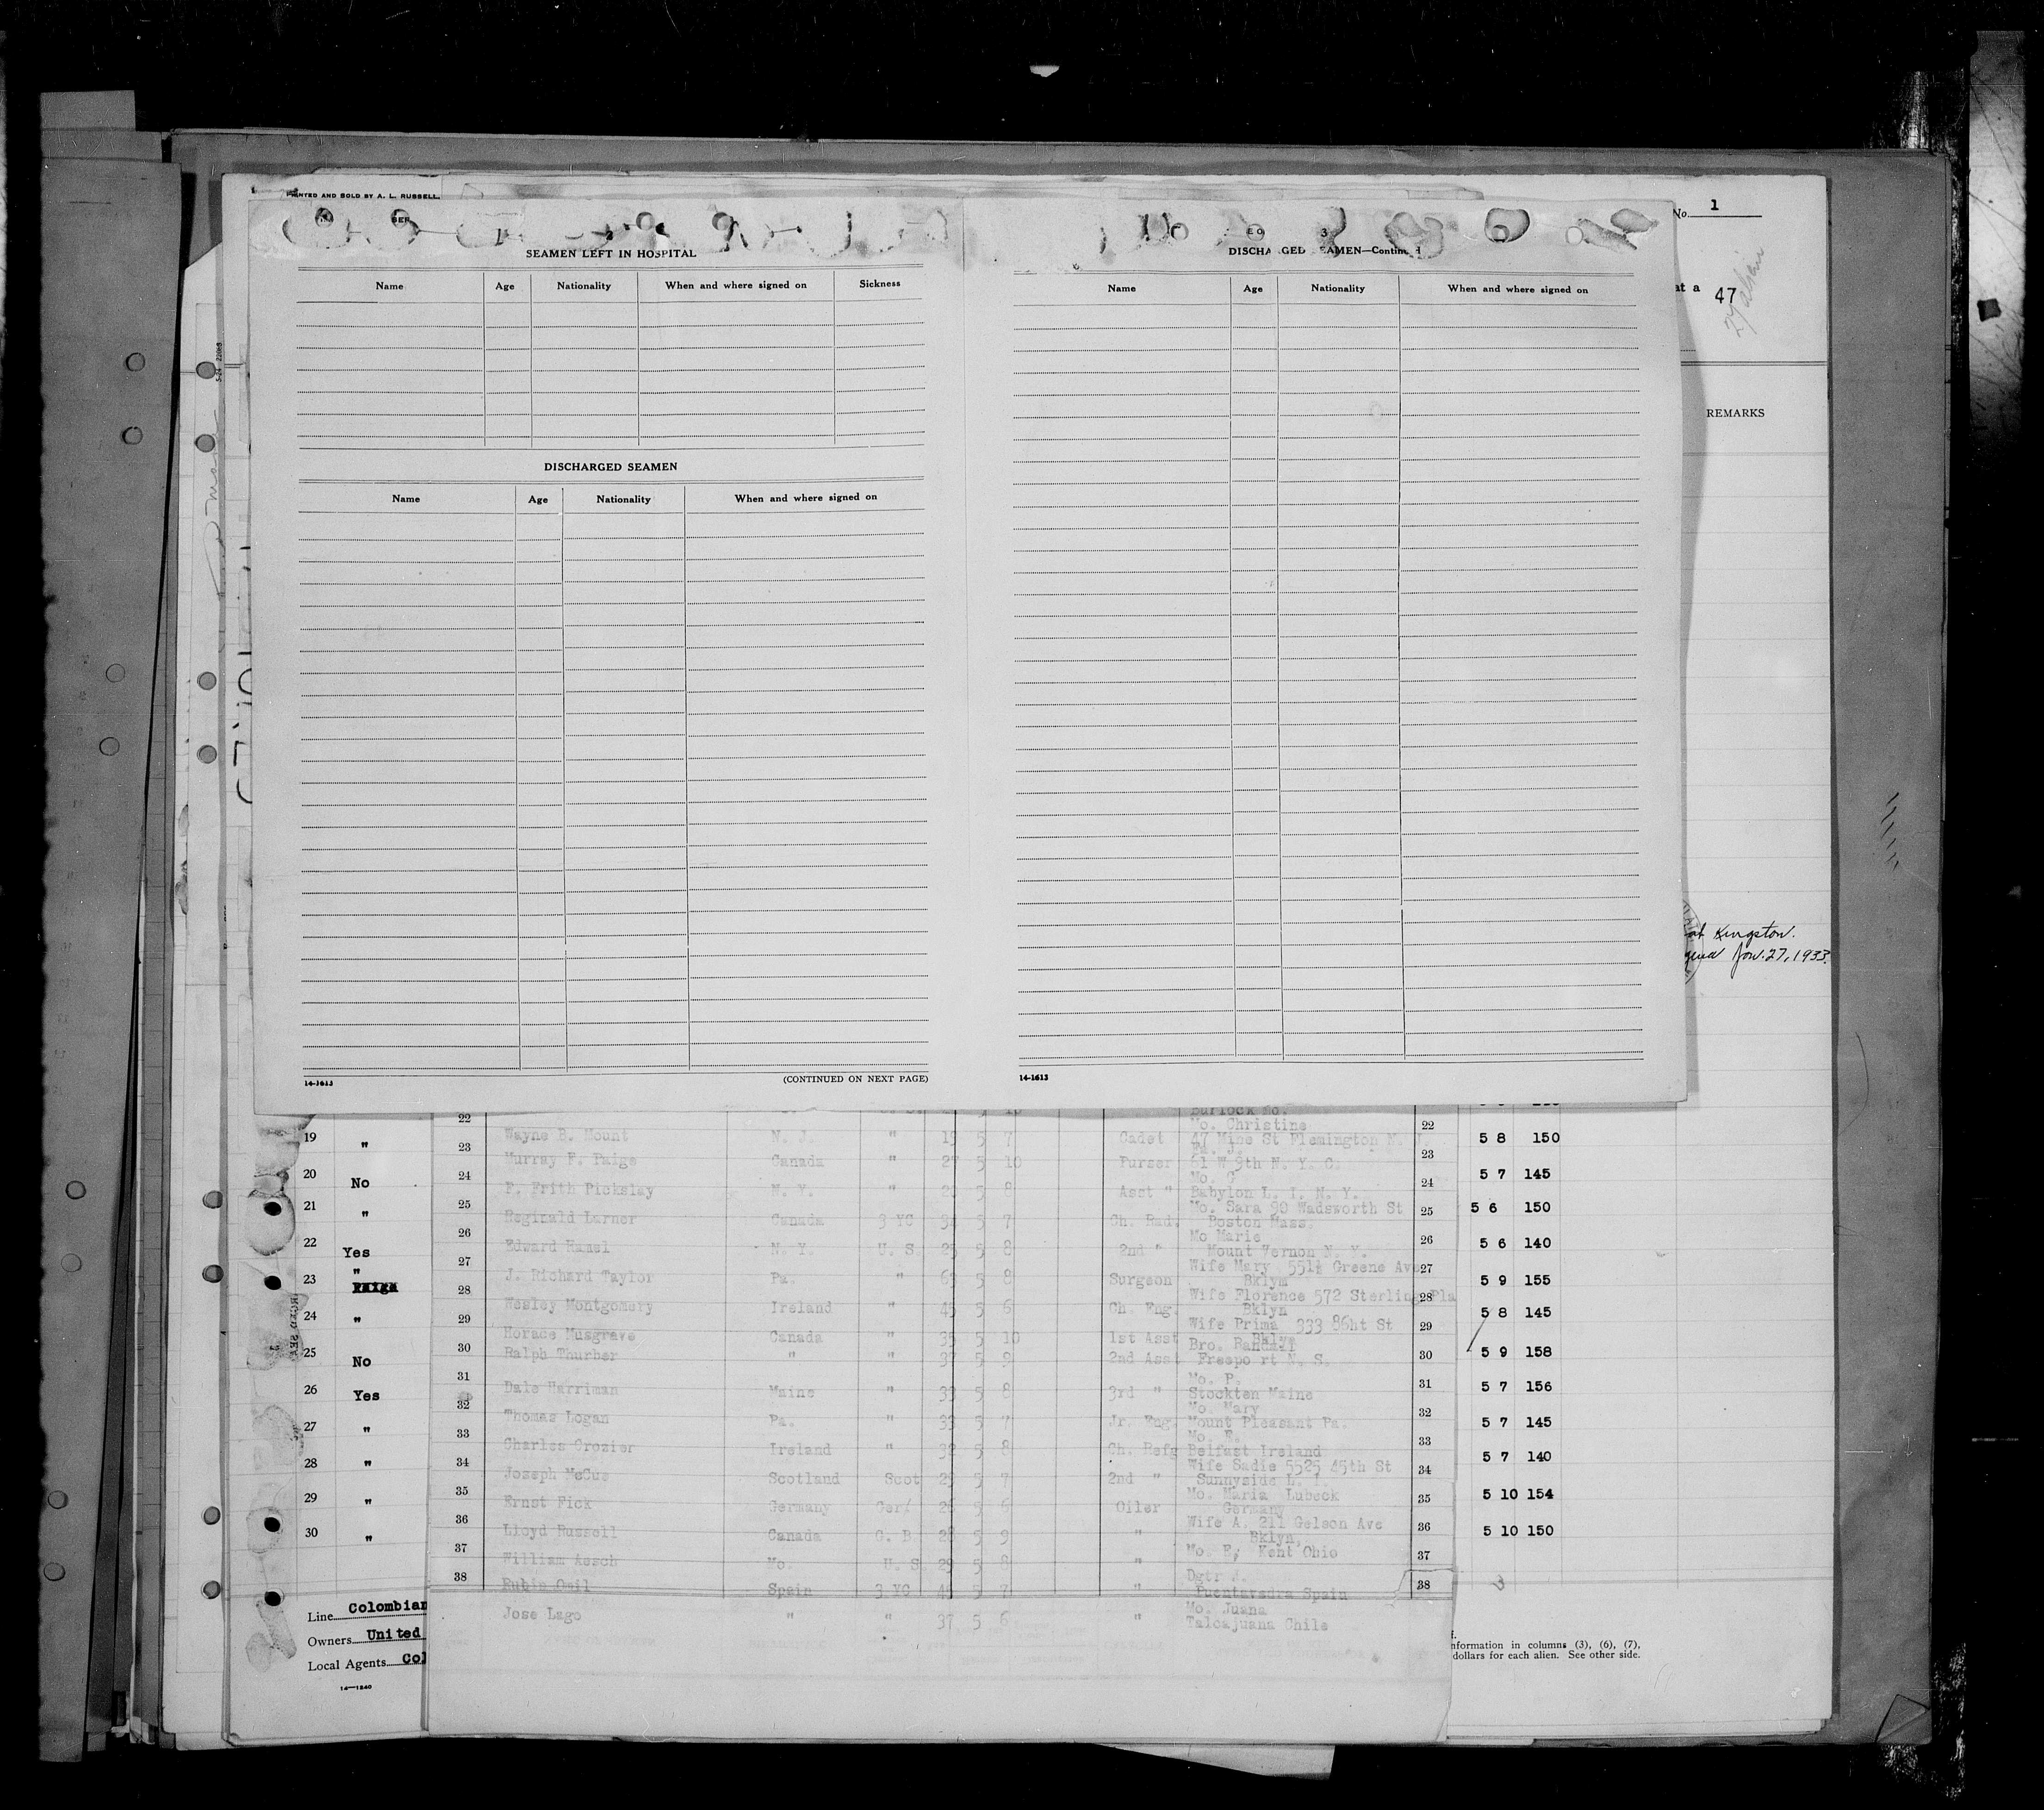 PRINTED AND SOLD BY A. L. RUSSELL,
No. 1
at a 47
REMARKS
5-24 22063
SEAMEN LEFT IN HOSPITAL
Name Age Nationality When and where signed on Sickness
DISCHARGED SEAMEN
Name Age Nationality When and where signed on
14-1613 (CONTINUED ON NEXT PAGE)
DISCHA GED EAMEN—Contin d
Name Age Nationality When and where signed on
14-1613
at Kingston.
Jan. 27, 1933.
Burlock Mo.
22 Mo. Christine 22
19 " Wayne B. Mount N. J. " 19 5 7 Cadet 47 Mine St Flemington N. 5 8 150
23 23
Murray F. Paige Canada " 27 5 10 Purser 61 W 9th N. Y. C.
20 No 24 Mo. G 24 5 7 145
F. Frith Pickslay N. Y. " 5 8 Asst " Babylon L. I. N. Y.
21 " 25 Mo. Sara 90 Wadsworth St 25 5 6 150
Reginald Larner Canada 3 YC 34 5 7 Ch. Rad. Boston Mass.
22 Yes 26 Mo Marie 26 5 6 140
Edward Hanel N. Y. U. S. 25 5 8 2nd " Mount Vernon N. Y.
27 Wife Mary 551½ Greene Ave 27
23 " J. Richard Taylor Pa. " 5 8 Surgeon Bklyn 5 9 155
28 Wife Florence 572 Sterling Pla 28
24 " Wesley Montgomery Ireland " 45 5 6 Ch. Eng. Bklyn 5 8 145
29 Wife Prima 333 86ht St 29
Horace Musgrave Canada " 35 5 10 1st Asst Bklyn
25 No 30 Bro. 30 5 9 158
Ralph Thurber " " 37 5 9 2nd Asst Freeport N. S.
31 Mo. P. 31
26 Yes Dale Harriman Maine " 33 5 8 3rd " Stockton Maine 5 7 156
32 Mo. Mary 32
27 " Thomas Logan Pa. " 33 5 7 Jr. Eng. Mount Pleasant Pa. 5 7 145
33 Mo. E. 33
Charles Crozier Ireland " 32 5 8 Ch. Refg Belfast Ireland
28 " 34 Wife Sadie 5525 45th St 34 5 7 140
Joseph McCue Scotland Scot 29 5 7 2nd " Sunnyside L. I.
29 " 35 Mo. Maria Lubeck 35 5 10 154
Ernst Fick Germany Ger. 5 6 Oiler Germany
36 Wife A. 211 Gelson Ave 36
30 " Lloyd Russell Canada G. B. 28 5 9 " Bklyn, 5 10 150
37 Mo. E; Kent Ohio 37
William Aesch Mo. U. S. 29 5 8 "
38 Dgtr M. 38
Rubin Omil Spain 3 YC 5 7 " Puentavedra Spain
Jose Lago " " 37 5 6 " Mo. Juana
Talcajuana Chile
Line Colombian
Owners United
Local Agents Col
14—1240
nformation in columns (3), (6), (7),
dollars for each alien. See other side.